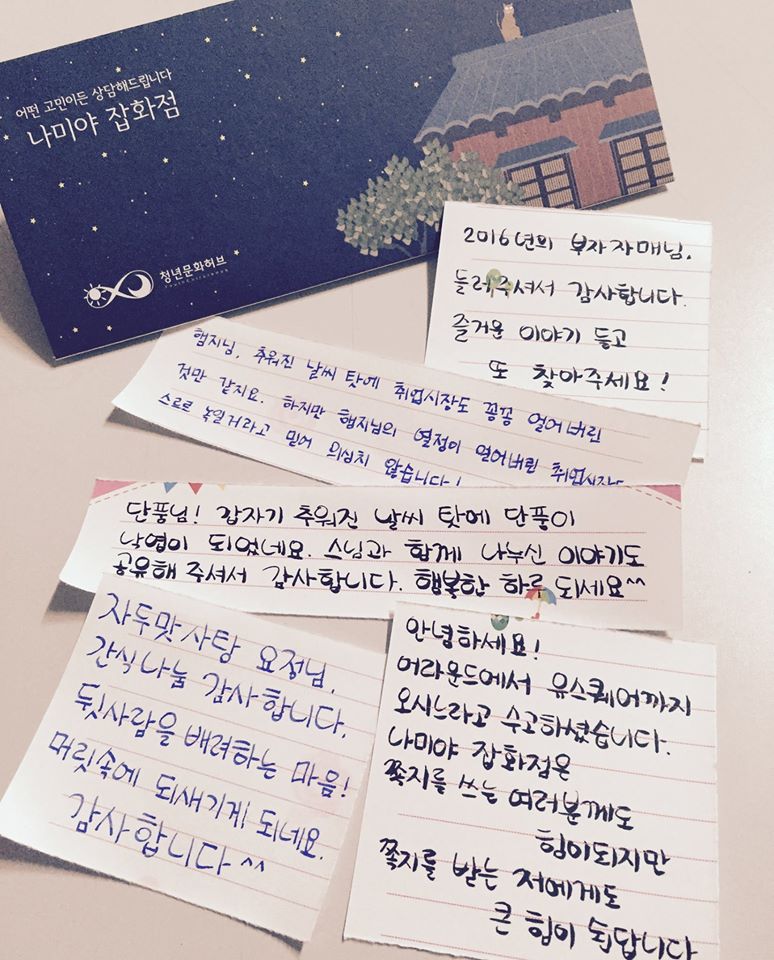 어떤 고민이든 상담해드립니다
나미야 잡화점
청년문화허브
2016년의 부자자매님.
들러주셔서 감사합니다.
즐거운 이야기 들고
또 찾아주세요!
햄지님, 추워진 날씨 탓에 취업시장도 꽁꽁 얼어버린
것만 같지요. 하지만 햄지님의 열정이 얼어버린 취업시장도
스르르 녹일거라고 믿어 의심치 않습니다!
단풍님! 갑자기 추워진 날씨 탓에 단풍이
낙엽이 되었네요. 스님과 함께 나누신 이야기도
공유해 주셔서 감사합니다. 행복한 하루 되세요^^
자두맛사탕 요정님.
간식나눔 감사합니다.
뒷사람을 배려하는 마음!
머릿속에 되새기게 되네요.
감사합니다^^
안녕하세요!
어라운드에서 유스퀘어까지
오시느라고 수고하셨습니다.
나미야 잡화점은
쪽지를 쓰는 여러분께도
힘이되지만
쪽지를 받는 저에게도
큰 힘이 된답니다